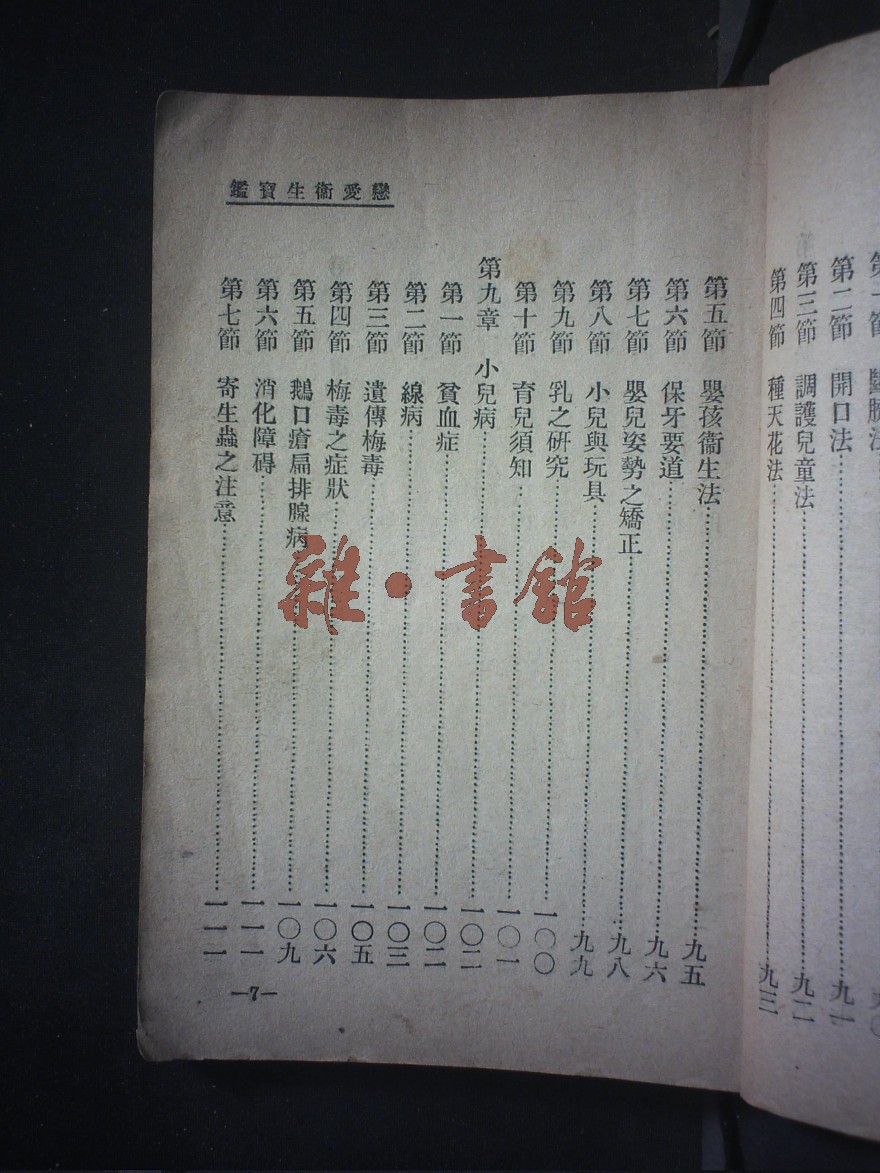 第二節　開口法……九一
第三節　調護兒童法……九二
第四節　種天花法……九三
戀愛衞生寶鑑
第五節　嬰孩衞生法……九五
第六節　保牙要道……九六
第七節　嬰兒姿勢之矯正……九八
第八節　小兒與玩具……九九
第九節　乳之研究……一〇〇
第十節　育兒須知……一〇一
第九章　小兒病……一〇二
第一節　貧血症……一〇二
第二節　線病……一〇三
第三節　遺傳梅毒……一〇五
第四節　梅毒之症狀……一〇六
第五節　鵝口瘡扁排腺病……一〇九
第六節　消化障碍……一一一
第七節　寄生蟲之注意……一一一
—7—
雜·書館